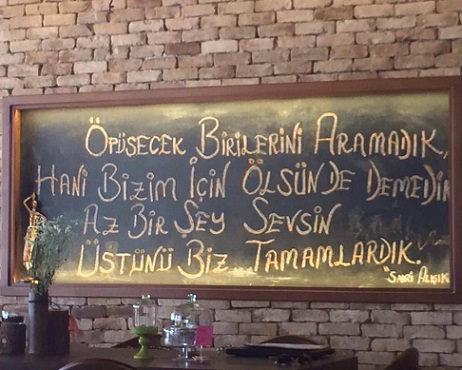 ÖPÜŞECEK BİRİLERİNİ ARAMADIK,
HANİ BİZİM İÇİN ÖLSÜN DE DEMEDİK
AZ BİR ŞEY SEVSİN
ÜSTÜNÜ BİZ TAMAMLARDIK.
"SADRİ ALIŞIK